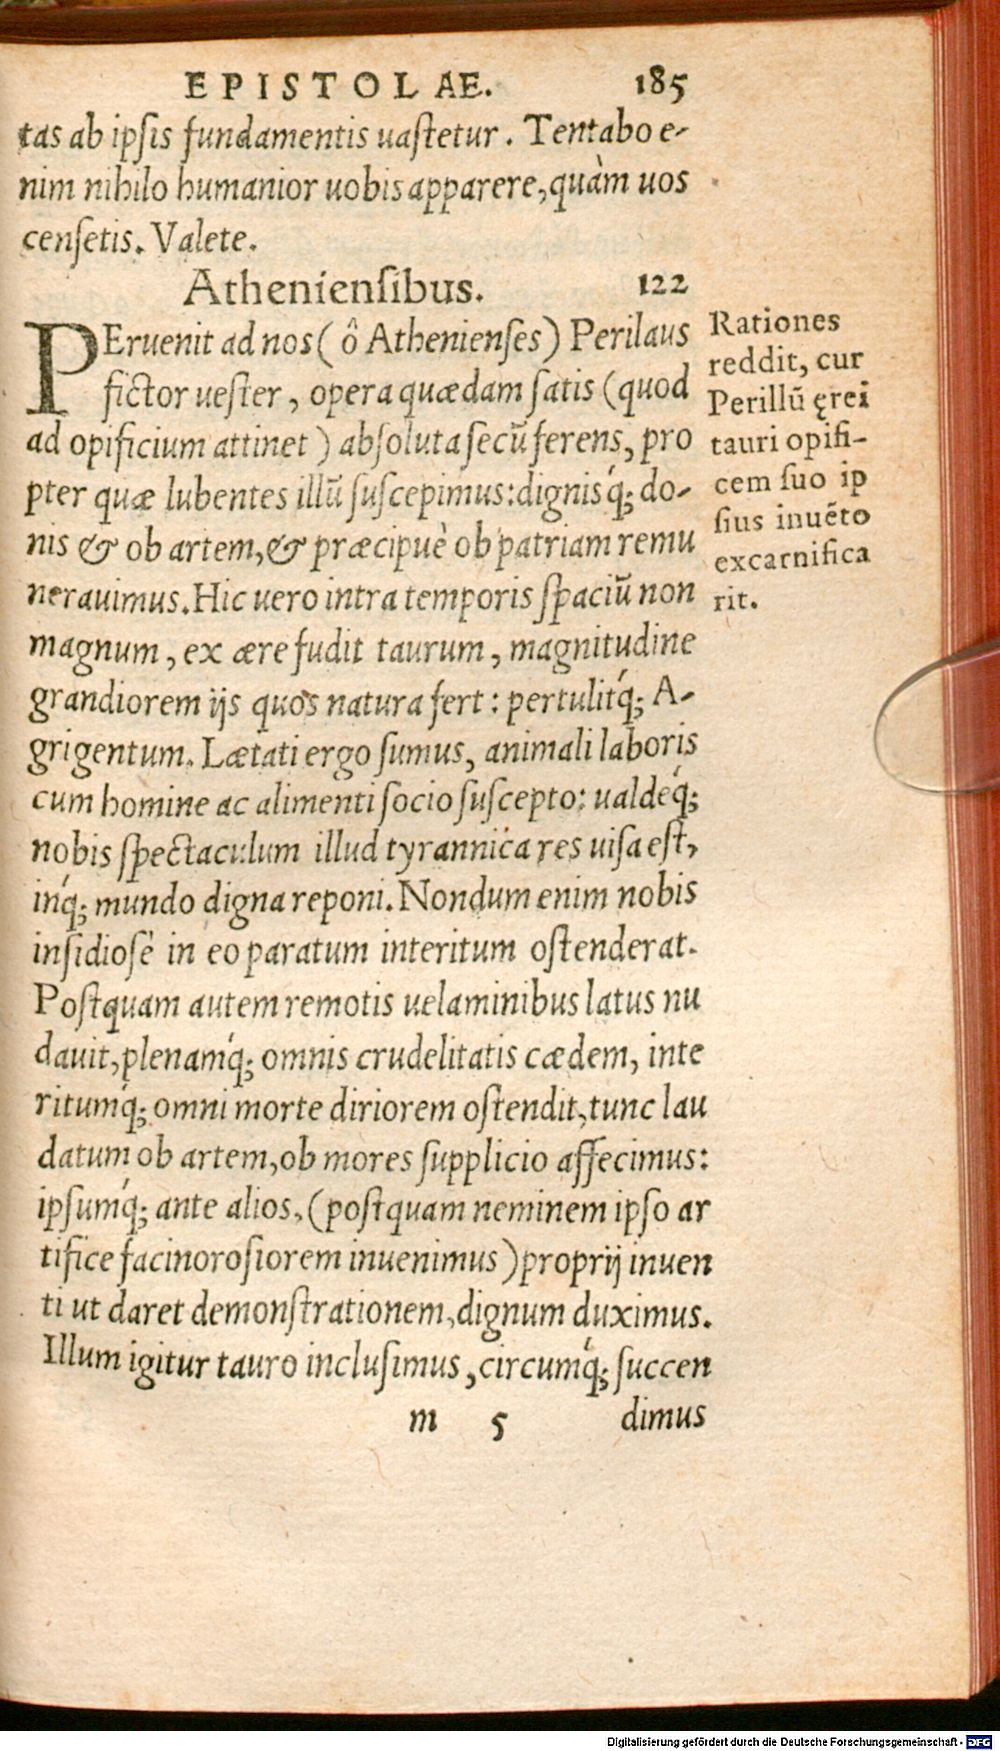 EPISTOLAE. 185
tas ab ipsis fundamentis uastetur. Tentabo e-
nim nihilo humanior uobis apparere, quàm uos
censetis. Valete.
Atheniensibus. 122
PEruenit ad nos (ô Athenienses) Perilaus
fictor uester, opera quædam satis (quod
ad opificium attinet) absoluta secũ ferens, pro
pter quæ lubentes illũ suscepimus: dignisq́; do-
nis & ob artem, & præcipuè ob patriam remu
nerauimus. Hic uero intra temporis spaciũ non
magnum, ex ære fudit taurum, magnitudine
grandiorem ijs quos natura fert: pertulitq́; A-
grigentum. Lætati ergo sumus, animali laboris
cum homine ac alimenti socio suscepto: ualdeq́;
nobis spectaculum illud tyrannica res uisa est,
inq́; mundo digna reponi. Nondum enim nobis
insidiosè in eo paratum interitum ostenderat.
Postquam autem remotis uelaminibus latus nu
dauit, plenamq́; omnis crudelitatis cædem, inte
ritumq́; omni morte diriorem ostendit, tunc lau
datum ob artem, ob mores supplicio affecimus:
ipsumq́; ante alios, (postquam neminem ipso ar
tifice facinorosiorem inuenimus) proprij inuen
ti ut daret demonstrationem, dignum duximus.
Illum igitur tauro inclusimus, circumq́; succen
m 5 dimus
Rationes
reddit, cur
Perillũ ęrei
tauri opifi-
cem suo ip
sius inuẽto
excarnifica
rit.
Digitalisierung gefördert durch die Deutsche Forschungsgemeinschaft - DFG